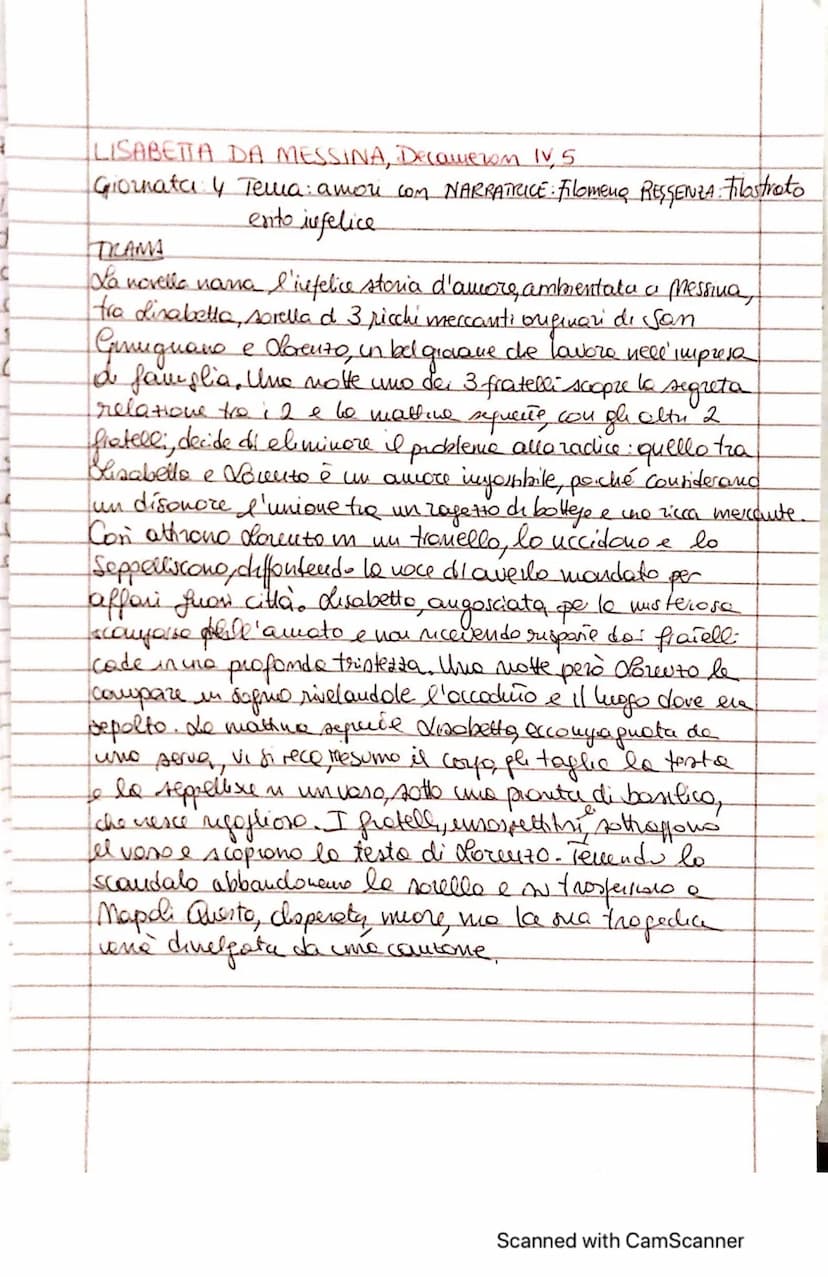 LISABETTA DA MESSINA, Decameron IV, 5
Giornata: 4 Tema: amori con NARRATRICE: Filomena REGGENZA: Filostrato
ento infelice
TRAMA
La novella narra l'infelice storia d'amore, ambientata a Messina,
tra Lisabetta, sorella di 3 ricchi mercanti originari di San
Gimignano e Lorenzo, un bel giovane che lavora nell'impresa
di famiglia. Una notte uno dei 3 fratelli scopre la segreta
relazione tra i 2 e la mattina seguente, con gli altri 2
fratelli, decide di eliminare il problema alla radice: quello tra
Lisabetta e Lorenzo è un amore impossibile, poiché considerano
un disonore l'unione tra un ragazzo di bottega e una ricca mercante.
Così attirano Lorenzo in un tranello, lo uccidono e lo
seppelliscono, diffondendo la voce di averlo mandato per
affari fuori città. Lisabetta, angosciata per la misteriosa
scomparsa dell'amato e non ricevendo risposte dai fratelli
cade in una profonda tristezza. Una notte però Lorenzo le
compare in sogno rivelandole l'accaduto e il luogo dove era
sepolto. La mattina seguente Lisabetta, accompagnata da
una serva, vi si reca, riesuma il corpo, gli taglia la testa
e la seppellisce in un vaso, sotto una pianta di basilico,
che cresce rigoglioso. I fratelli, insospettitisi, sottraggono
il vaso e scoprono la testa di Lorenzo. Temendo lo
scandalo abbandonano la sorella e si trasferiscono a
Napoli. Questa, disperata, muore, ma la sua tragedia
verrà divulgata da una canzone.
Scanned with CamScanner